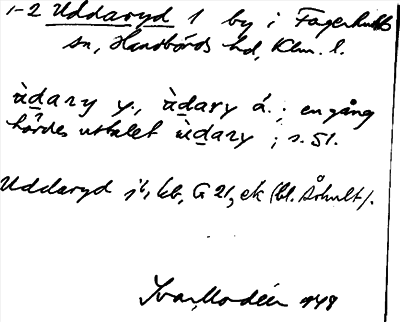 1-2 Uddaryd 1 by i Fagerhults
sn, Handbörds hd, Klm. l.
ùdary y., ùdary á.; en gång
hördes uttalet ùdary ; s. 51.
Uddaryd jb, kb, G 21, ek (bl. Århult).
Ivar Modéer 1948